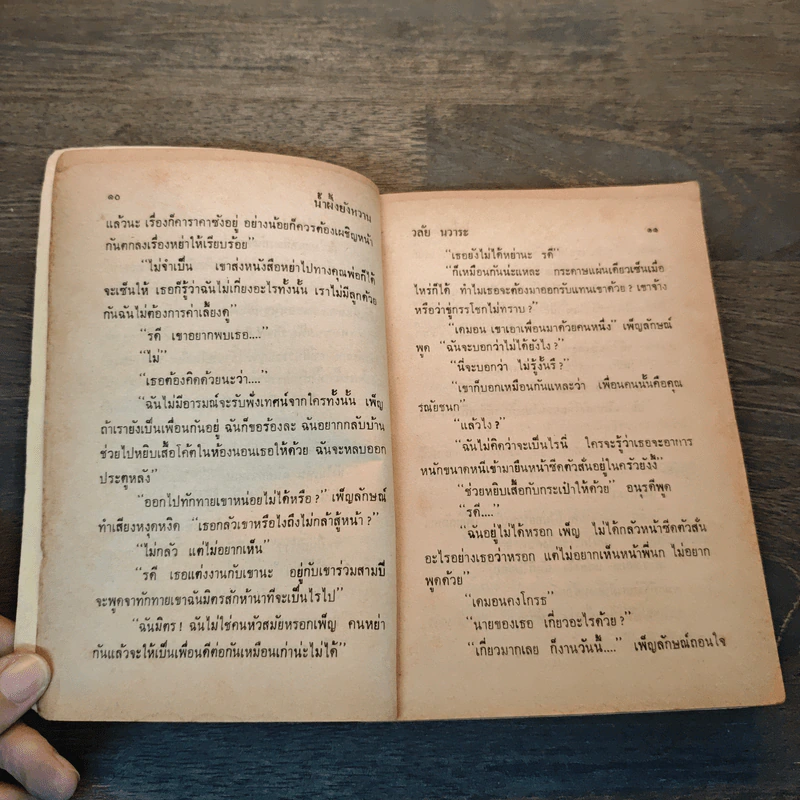 ๑๐
น้ำผึ้งยังหวาน
แล้วนะ เรื่องก็คาราคาซังอยู่ อย่างน้อยก็ควรต้องเผชิญหน้า
กันตกลงเรื่องหย่าให้เรียบร้อย”
“ไม่จำเป็น เขาส่งหนังสือหย่าไปทางคุณพ่อก็ได้
จะเซ็นให้ เธอก็รู้ว่าฉันไม่เกี่ยงอะไรทั้งนั้น เราไม่มีลูกด้วย
กันฉันไม่ต้องการค่าเลี้ยงดู”
“รตี เขาอยากพบเธอ....”
“ไม่”
“เธอต้องคิดด้วยนะว่า....”
“ฉันไม่มีอารมณ์จะรับฟังเทศน์จากใครทั้งนั้น เพ็ญ
ถ้าเรายังเป็นเพื่อนกันอยู่ ฉันก็ขอร้องละ ฉันอยากกลับบ้าน
ช่วยไปหยิบเสื้อโค้ตในห้องนอนเธอให้ด้วย ฉันจะหลบออก
ประตูหลัง”
“ออกไปทักทายเขาหน่อยไม่ได้หรือ?” เพ็ญลักษณ์
ทำเสียงหงุดหงิด “เธอกลัวเขาหรือไงถึงไม่กล้าสู้หน้า?”
“ไม่กลัว แต่ไม่อยากเห็น”
“รตี เธอแต่งงานกับเขานะ อยู่กับเขาร่วมสามปี
จะพูดจาทักทายเขาฉันมิตรสักห้านาทีจะเป็นไรไป”
“ฉันมิตร! ฉันไม่ใช่คนหัวสมัยหรอกเพ็ญ คนหย่า
กันแล้วจะให้เป็นเพื่อนดีต่อกันเหมือนเก่าน่ะไม่ได้”
วลัย นวาระ
๑๑
“เธอยังไม่ได้หย่านะ รตี”
“ก็เหมือนกันน่ะแหละ กระดาษแผ่นเดียวเซ็นเมื่อ
ไหร่ก็ได้ ทำไมเธอจะต้องมาออกรับแทนเขาด้วย? เขาจ้าง
หรือว่าขู่กรรโชกไม่ทราบ?”
“เดมอน เขาเอาเพื่อนมาด้วยคนหนึ่ง” เพ็ญลักษณ์
พูด “ฉันจะบอกว่าไม่ได้ยังไง?”
“นี่จะบอกว่า ไม่รู้งั้นรึ?”
“เขาก็บอกเหมือนกันแหละว่า เพื่อนคนนั้นคือคุณ
รณัยชนก”
“แล้วไง?”
“ฉันไม่คิดว่าจะเป็นไรนี่ ใครจะรู้ว่าเธอจะอาการ
หนักขนาดหนีเข้ามายืนหน้าซีดตัวสั่นอยู่ในครัวยังงี้”
“ช่วยหยิบเสื้อกับกระเป๋าให้ด้วย” อนุรตีพูด
“รตี....”
“ฉันอยู่ไม่ได้หรอก เพ็ญ ไม่ได้กลัวหน้าซีดตัวสั่น
อะไรอย่างเธอว่าหรอก แต่ไม่อยากเห็นหน้าพี่นก ไม่อยาก
พูดด้วย”
“เดมอนคงโกรธ”
“นายของเธอ เกี่ยวอะไรด้วย?”
“เกี่ยวมากเลย ก็งานวันนี้....” เพ็ญลักษณ์ถอนใจ